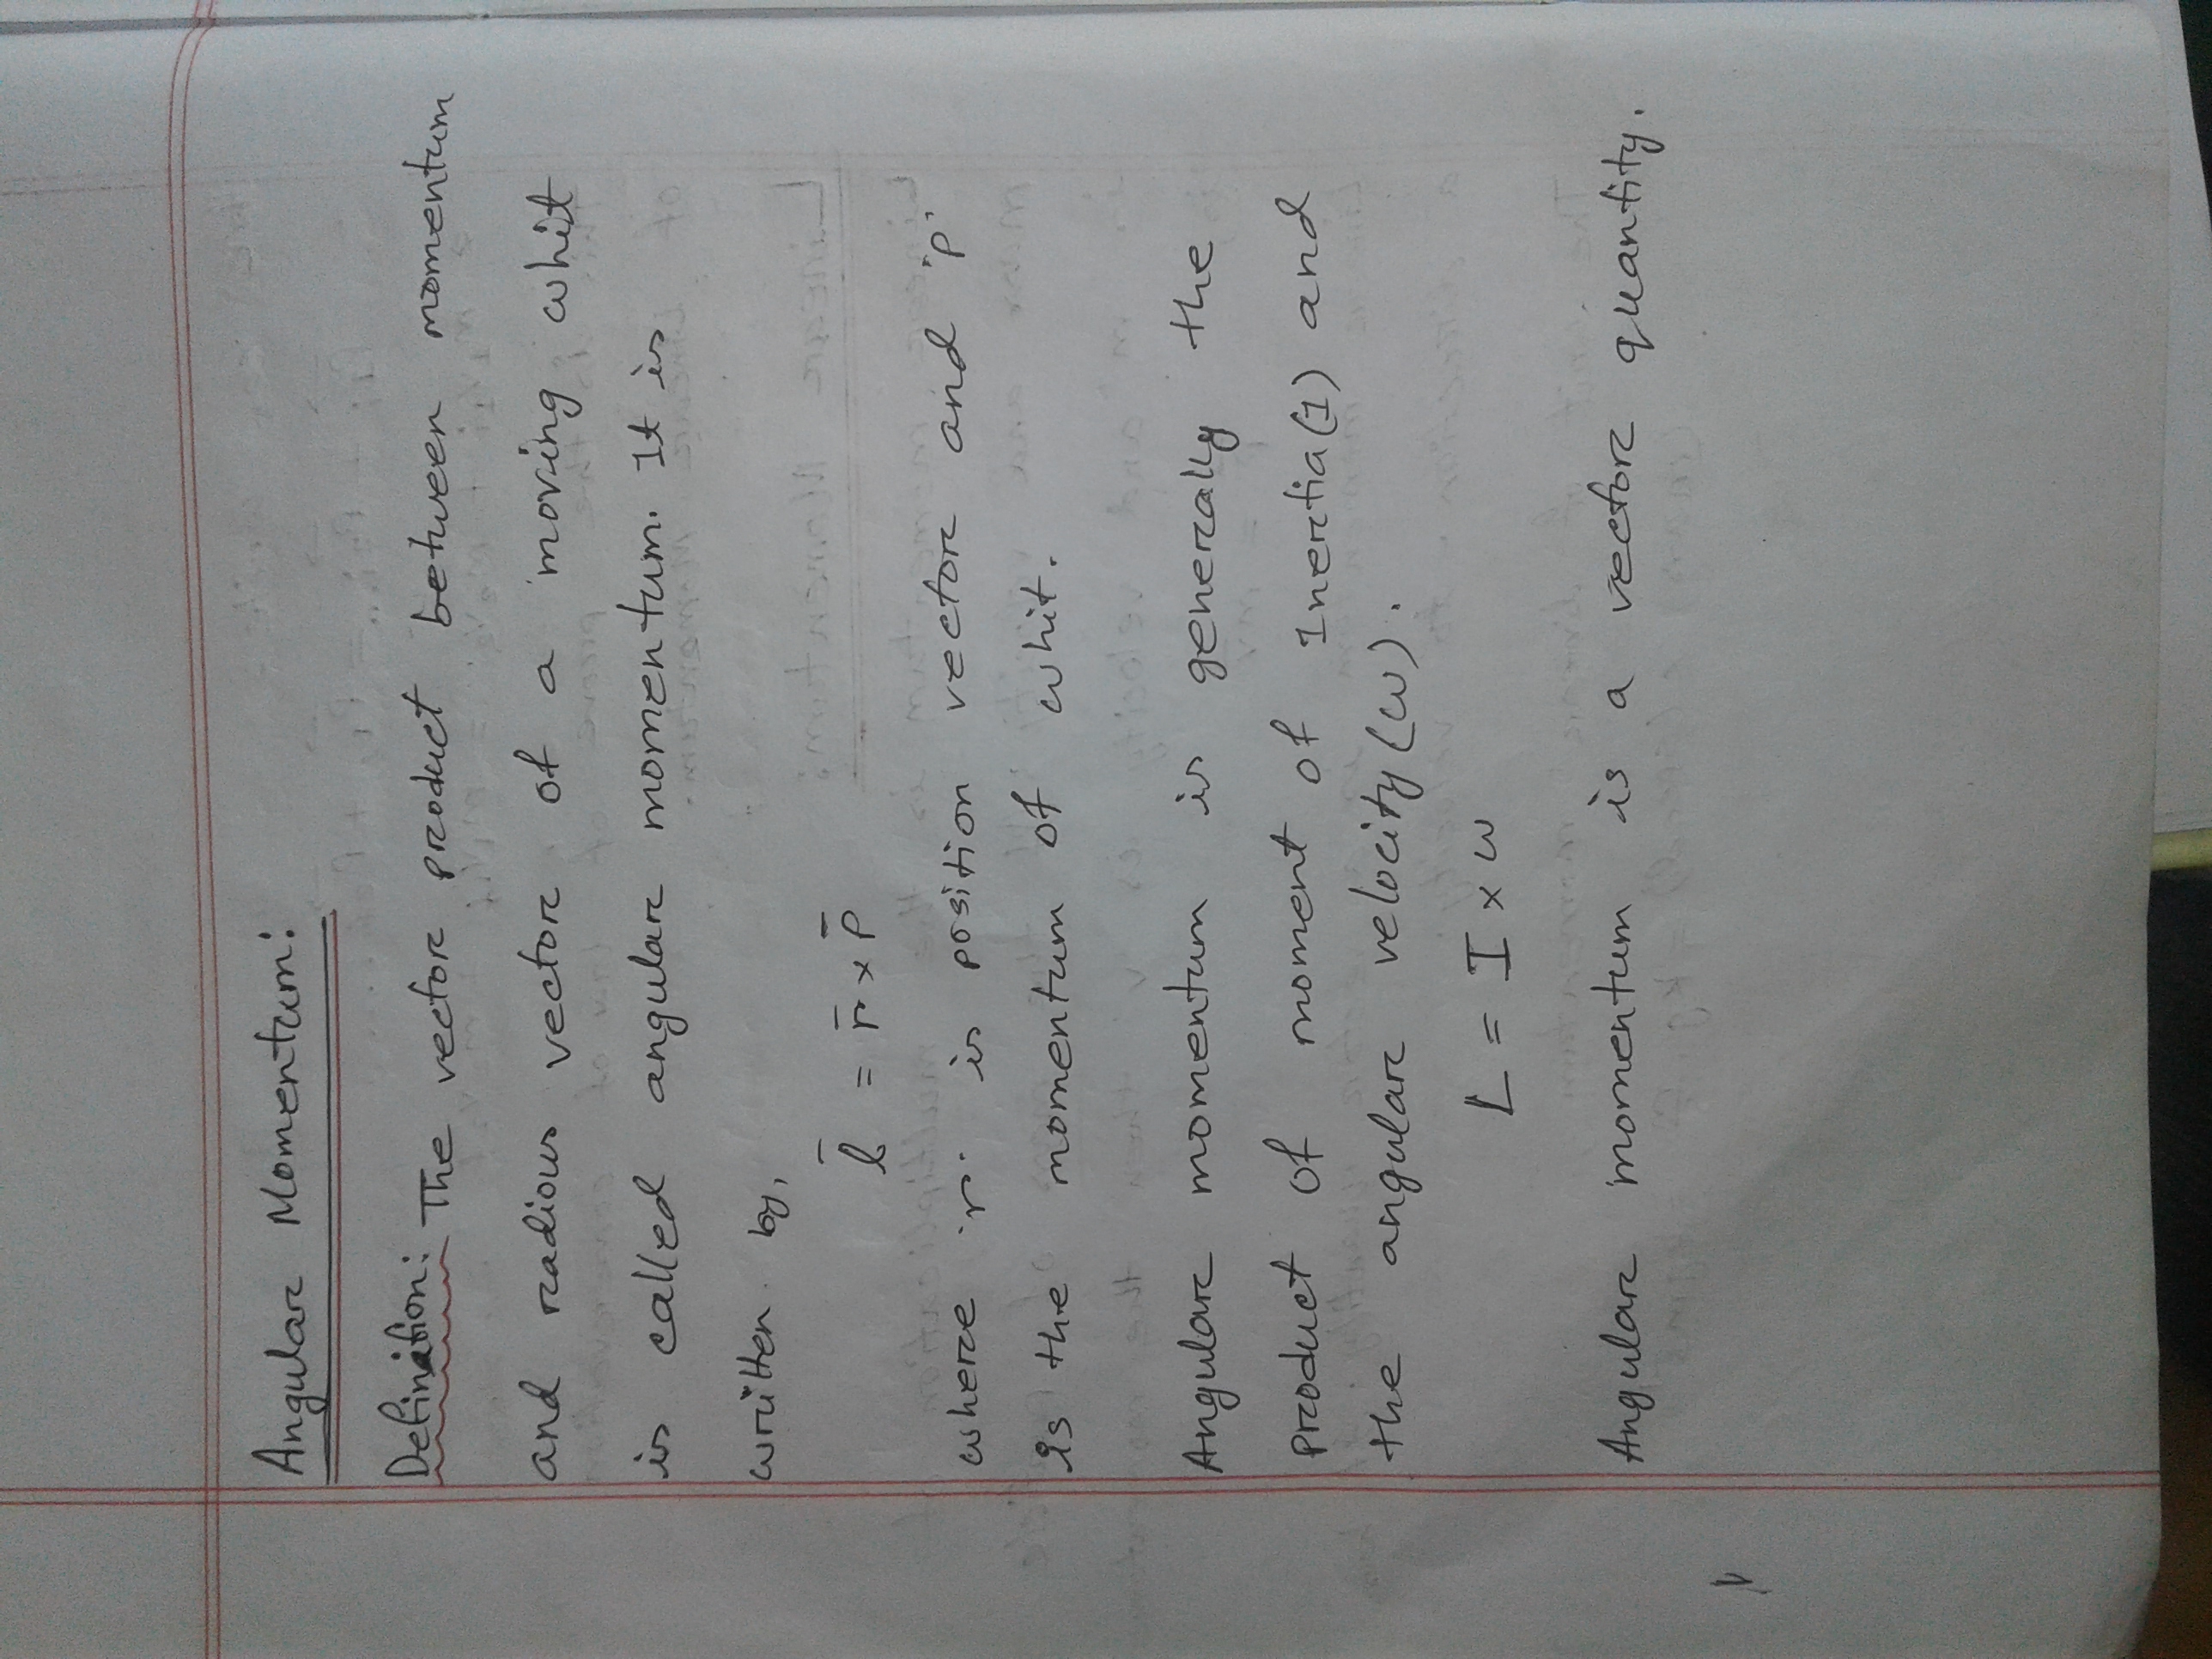 Angular Momentum:
Defination: The vector product between momentum
and radious vector of a moving whit
is called angular momentum. It is
written by,
l̄ = r̄ × p̄
where 'r' is position vector and 'p'
is the momentum of whit.
Angular momentum is generally the
product of moment of Inertia(I) and
the angular velocity (ω).
L = I × ω
Angular momentum is a vector quantity.